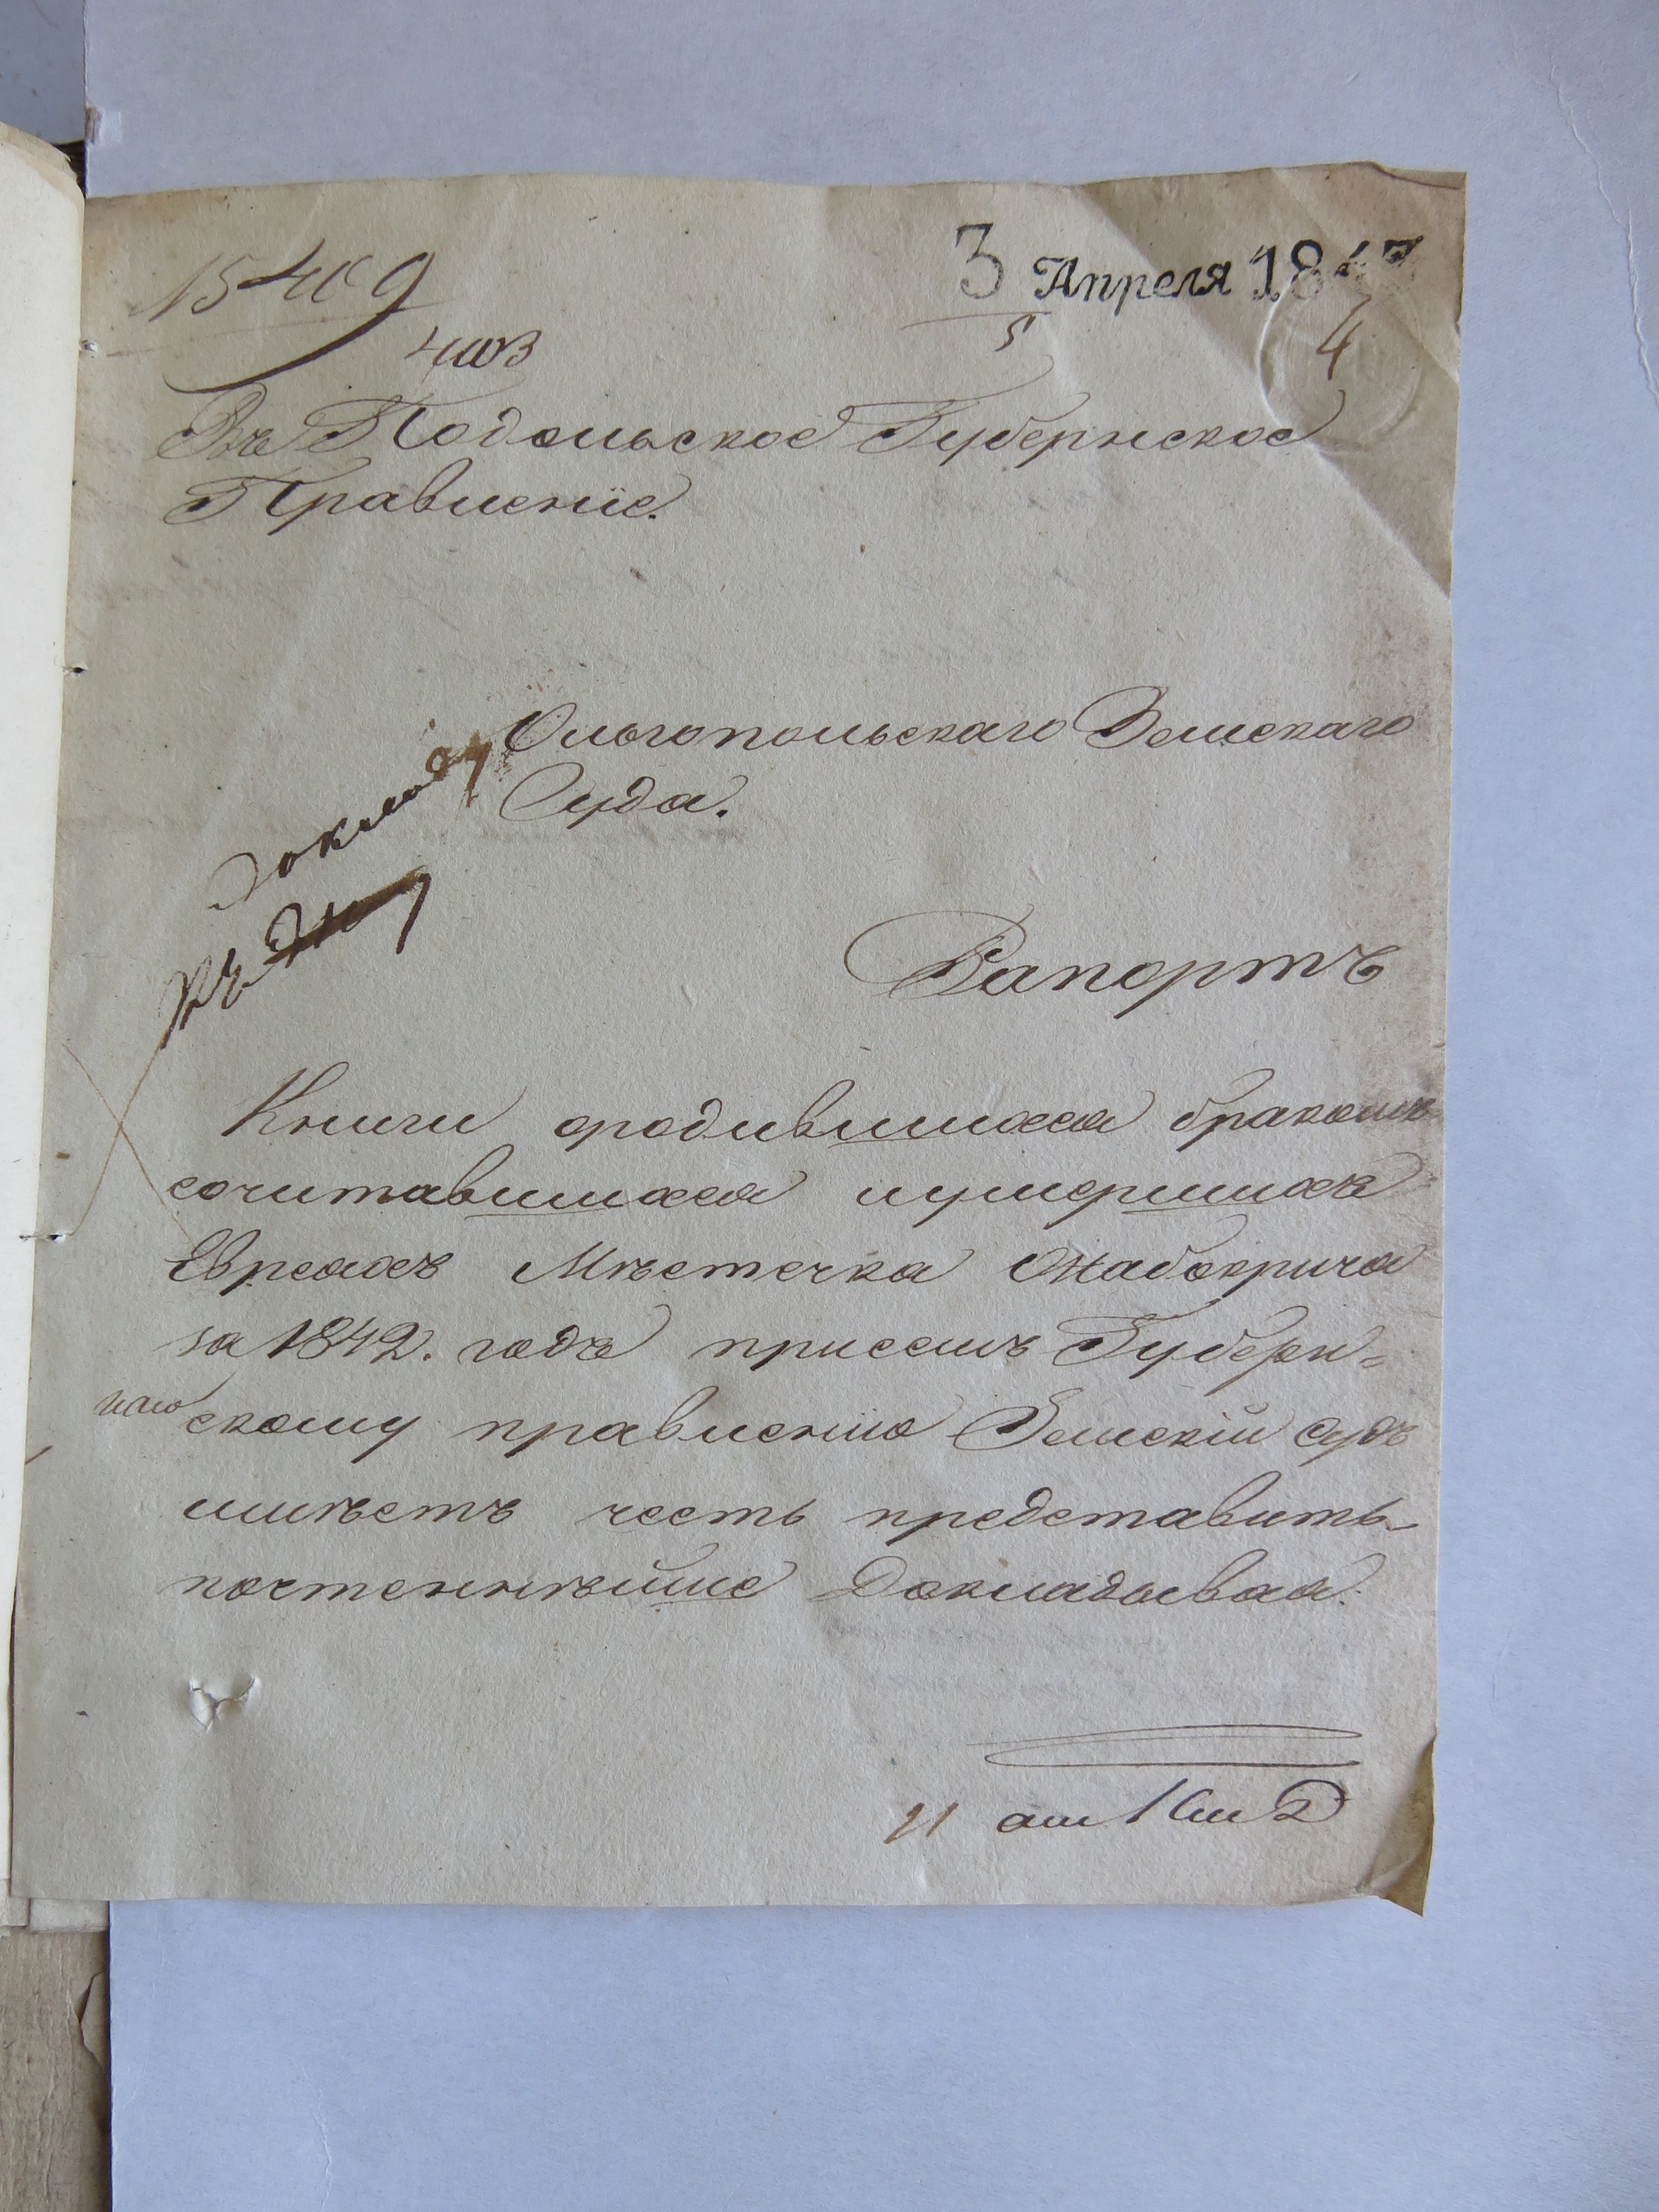 15409
3 Апреля 184
5
4
Въ Подольское Губернское
Правленіе.
Ольгопольскаго Земскаго
Суда.
Докладу
Рапортъ
Книги ородившихся бракомъ
сочитавшихся иумершихъ
Евреахъ Мѣстечка Жабокрича
за 1842. годъ присемъ Губерн=
скому правленію Земскій судъ
имѣетъ честь представить
почтеннѣйше Докладывая.